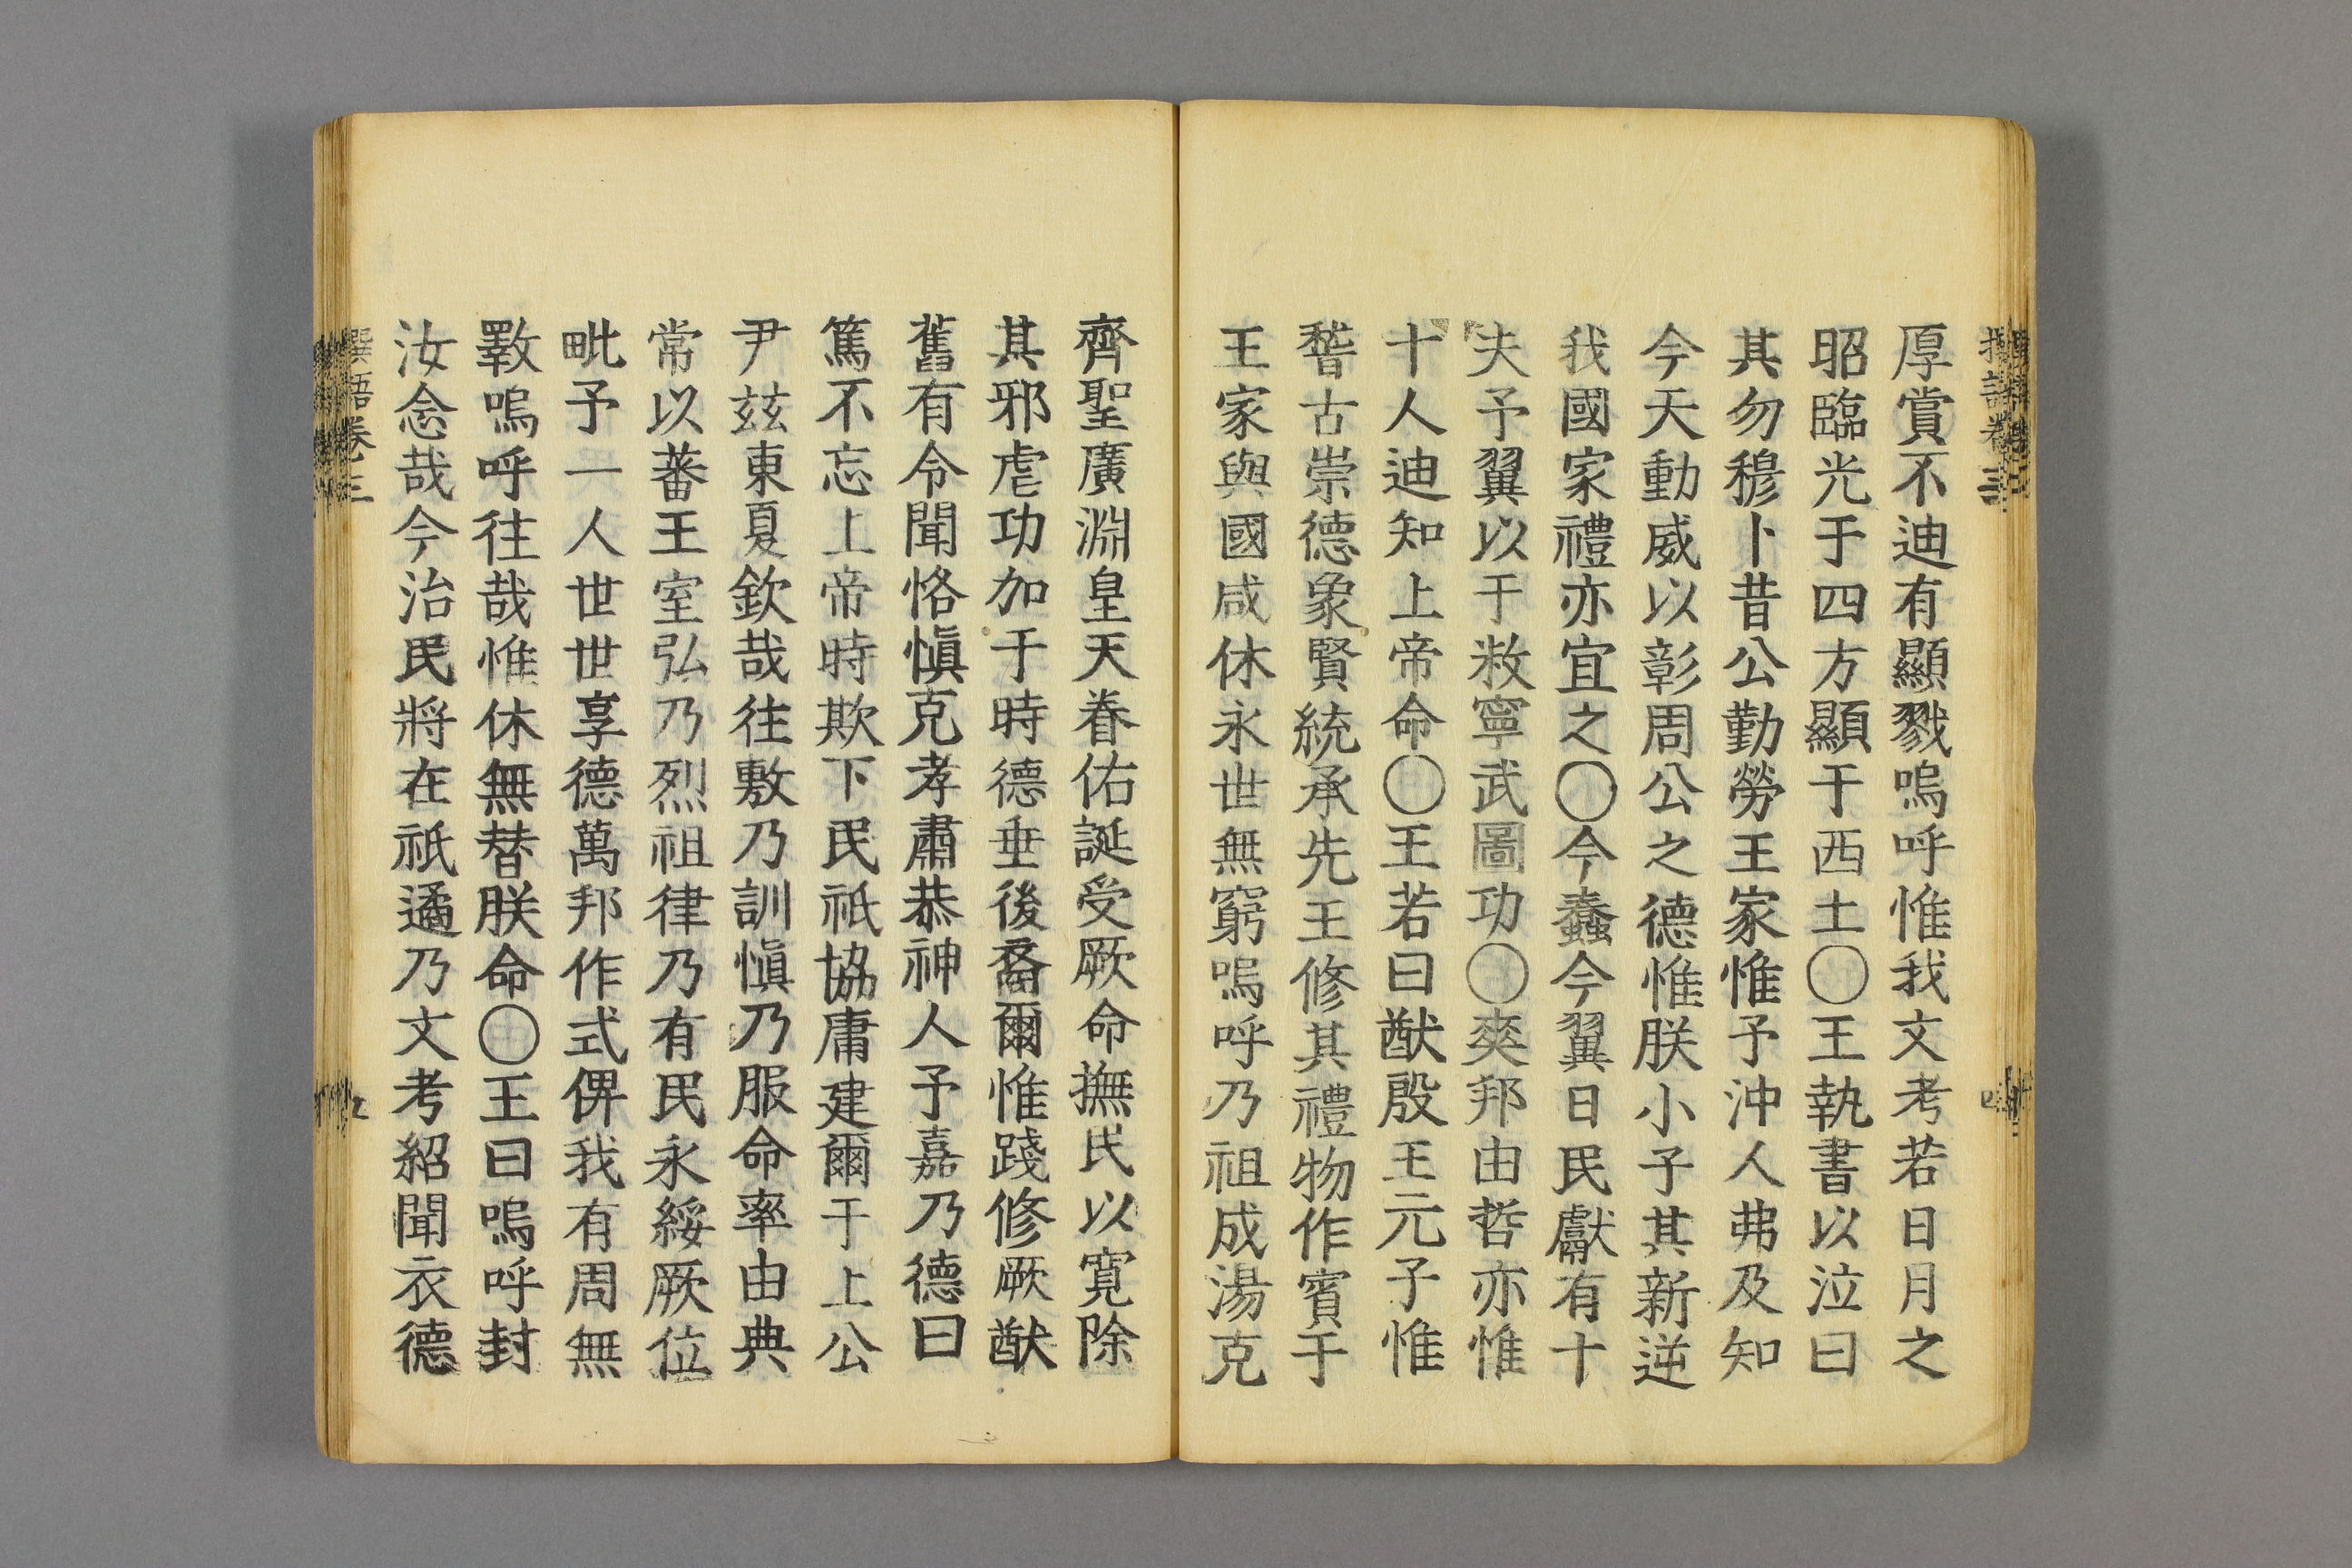 厚賞不迪有顯戮嗚呼惟我文考若日月之
昭臨光于四方顯于西土〇王執書以泣曰
其勿穆卜昔公勤勞王家惟予沖人弗及知
今天動威以彰周公之德惟朕小子其新逆
我國家禮亦宜之〇今蠢今翼日民獻有十
夫予翼以于敉寧武圖功〇爽邦由哲亦惟
十人迪知上帝命〇王若曰猷殷王元子惟
稽古崇德象賢統承先王修其禮物作賓于
王家與國咸休永世無窮嗚呼乃祖成湯克
齊聖廣淵皇天眷佑誕受厥命撫民以寬除
其邪虐功加于時德垂後裔爾惟踐修厥猷
舊有令聞恪愼克孝肅恭神人予嘉乃德曰
篤不忘上帝時歆下民祇協庸建爾于上公
尹茲東夏欽哉往敷乃訓愼乃服命率由典
常以蕃王室弘乃烈祖律乃有民永綏厥位
毗予一人世世享德萬邦作式俾我有周無
斁嗚呼往哉惟休無替朕命〇王曰嗚呼封
汝念哉今治民將在祇遹乃文考紹聞衣德
撰語卷三
五